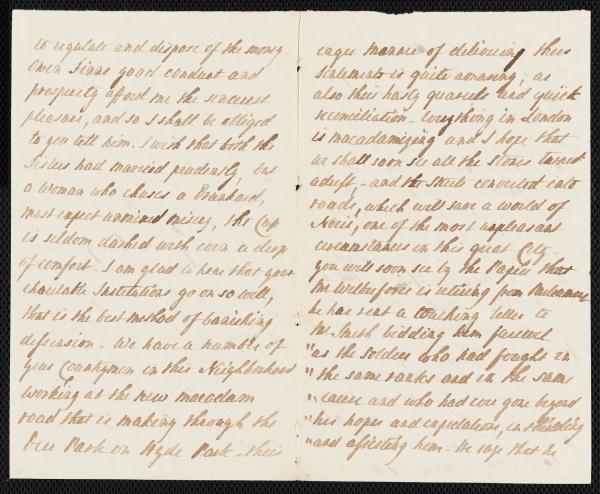 to regulate and dispose of the money
Owen Finns good conduct and
prosperity afford me the sincerest
pleasure, and so I shall be obliged
to you tell him. I wish that both the
Sisters had married prudently, but
a woman who chuses a Drunkard,
must expect unmixed misery, the Cup
is seldom dashed with even a drop
of comfort - I am glad to hear that your
charitable Institutions go on so well,
that is the best method of banishing
dissension - We have a number of
your Countrymen in this Neighborhood
working at the new macadam
road that is making through the
Deer Park in Hyde Park - their
eager manner of delivering their
sentiments is quite amusing, as
also their hasty quarrels and quick
reconciliation - Everything in London
is macadamizing and I hope that
we shall soon see all the stones turned
adrift - and the streets converted into
roads, which will save a world of
Noise, one of the most unpleasant
circumstances in this great City -
you will soon see by the Papers that
Mr Wilberforce is retiring from Parliament
he has sent a touching letter to
Mr Smith bidding him farewel
"as the soldier who had fought in
"the same ranks and in the same
"cause and who had ever gone beyond
"his hopes and expectations, in
"and assisting him - He says that he